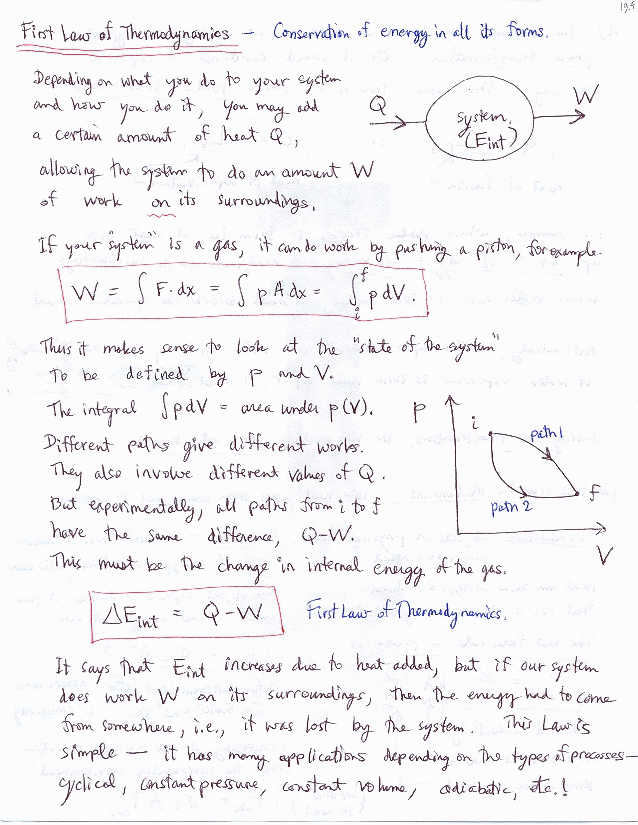 19.4
First Law of Thermodynamics — Conservation of energy in all its forms.
Depending on what you do to your system
and how you do it, you may add
a certain amount of heat Q,
allowing the system to do an amount W
of work on its surroundings.
Q
system
(Eint)
W
If your "system" is a gas, it can do work by pushing a piston, for example.
W = ∫ F·dx = ∫ p A dx = ∫ᵢᶠ p dV.
Thus it makes sense to look at the "state of the system"
to be defined by p and V.
The integral ∫pdV = area under p(V).
Different paths give different works.
They also involve different values of Q.
But experimentally, all paths from i to f
have the same difference, Q-W.
This must be the change in internal energy of the gas.
P
i
path 1
f
path 2
V
ΔEint = Q-W First Law of Thermodynamics.
It says that Eint increases due to heat added, but if our system
does work W on its surroundings, then the energy had to come
from somewhere, i.e., it was lost by the system. This Law is
simple — it has many applications depending on the types of processes—
cyclical, constant pressure, constant volume, adiabatic, etc.!